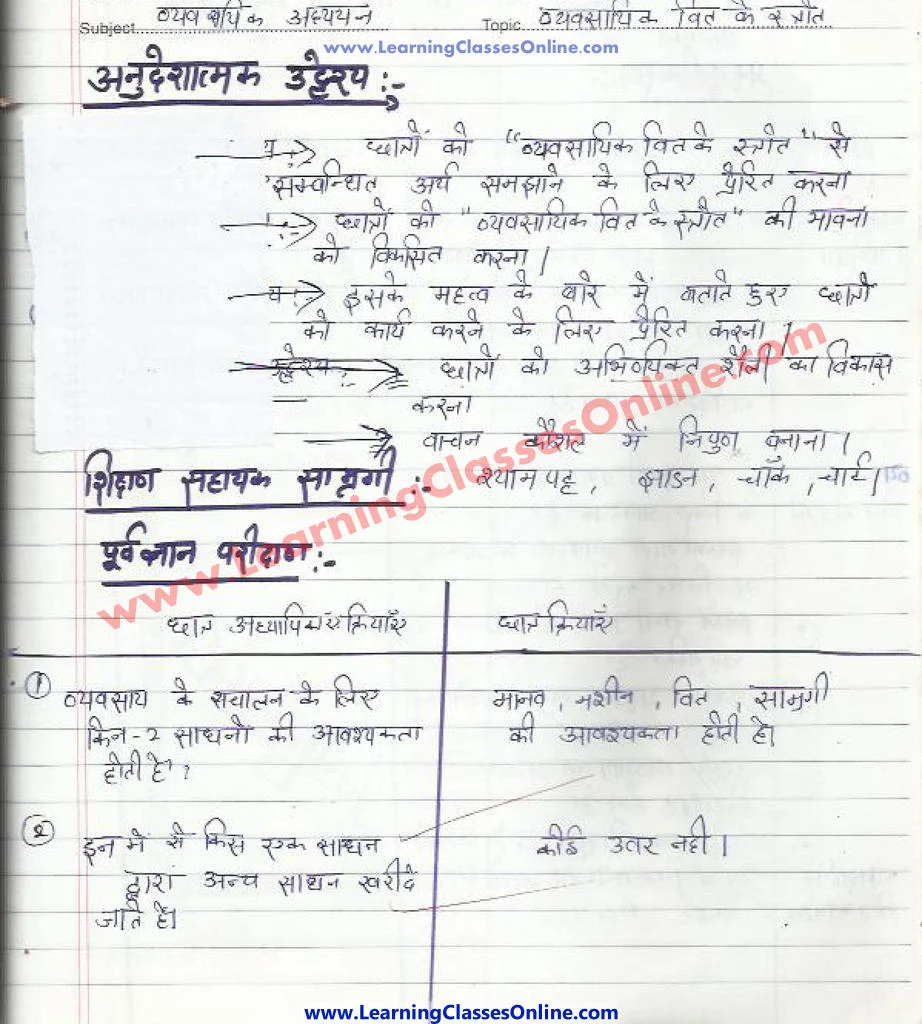 Subject व्यवसायिक अध्ययन Topic व्यवसायिक वित के स्त्रोत
www.LearningClassesOnline.com
अनुदेशात्मक उद्देश्य :-
छात्रों को "व्यवसायिक वित के स्त्रोत" से
सम्बन्धित अर्थ समझाने के लिए प्रेरित करना
छात्रों को "व्यवसायिक वित के स्त्रोत" की भावना
को विकसित करना।
इसके महत्व के बारे में बताते हुए छात्रों
को कार्य करने के लिए प्रेरित करना।
उद्देश्य:- छात्रों को अभिव्यक्ति शैली का विकास
करना
वाचन कौशल में निपुण बनाना।
शिक्षण सहायक सामग्री :- श्यामपट्ट, झाडन, चॉक, चार्ट।
पूर्वज्ञान परीक्षण :-
www.LearningClassesOnline.com
छात्र अध्यापिकाएँ क्रियाएँ छात्र क्रियाएँ
① व्यवसाय के सचालन के लिए मानव, मशीन, वित, सामग्री
किन-2 साधनो की आवश्यकता की आवश्यकता होती है।
होती है?
② इन मे से किस एक साधन कोई उतर नही।
द्वारा अन्य साधन खरीदे
जाते है।
www.LearningClassesOnline.com